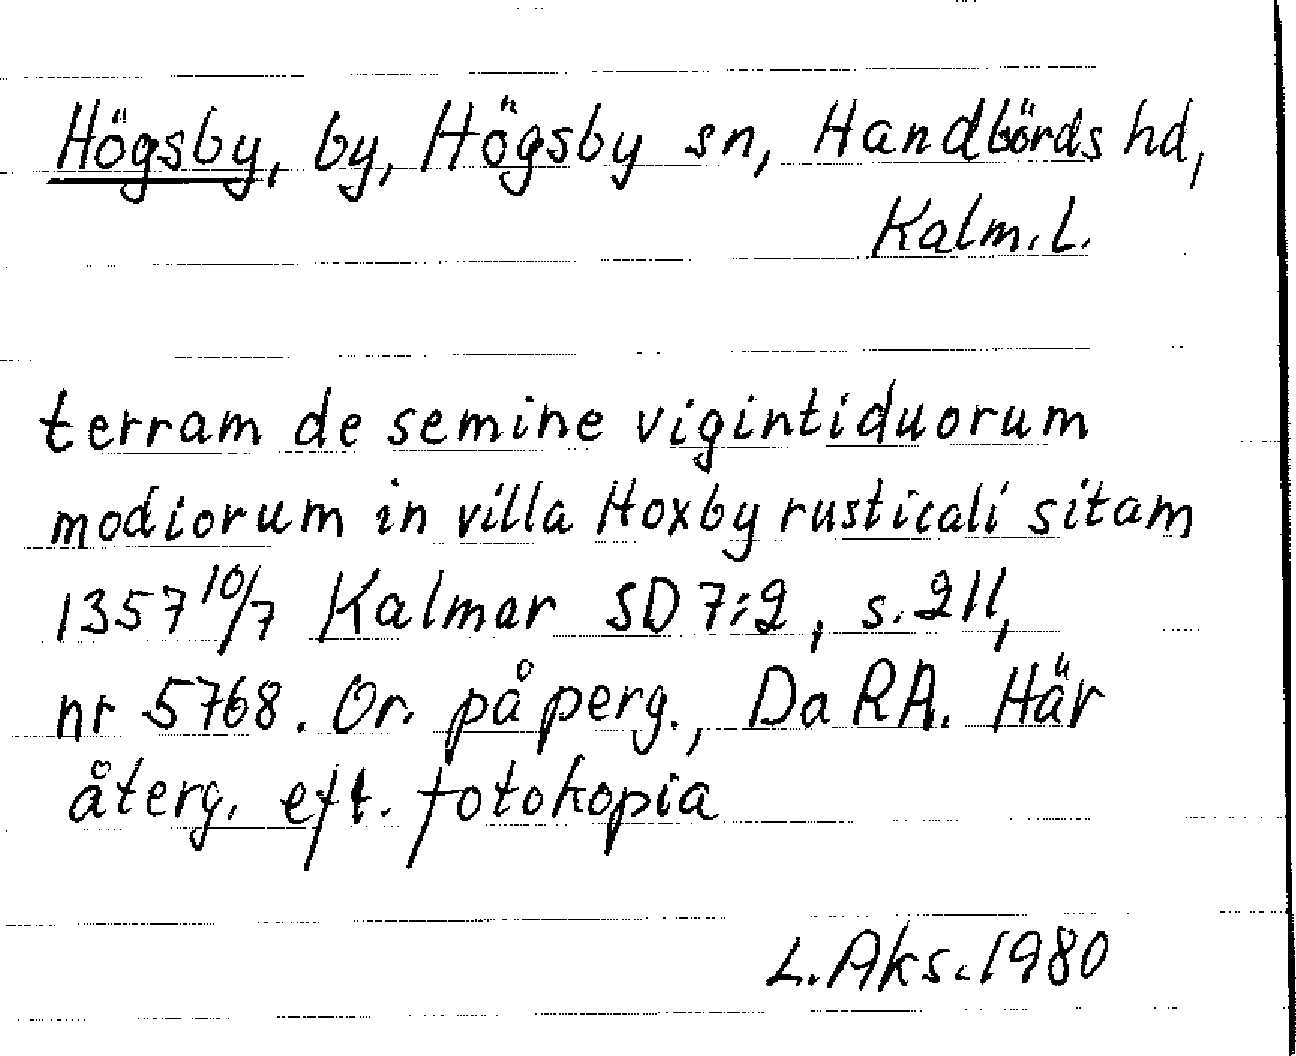 Högsby, by, Högsby sn, Handbörds hd,
Kalm. L.
terram de semine vigintiduorum
modiorum in villa Hoxby rusticali sitam
1357 10/7 Kalmar SD 7:2, s. 211,
nr 5768. Or. på perg., Da RA. Här
återg. eft. fotokopia
L. Aks. 1980